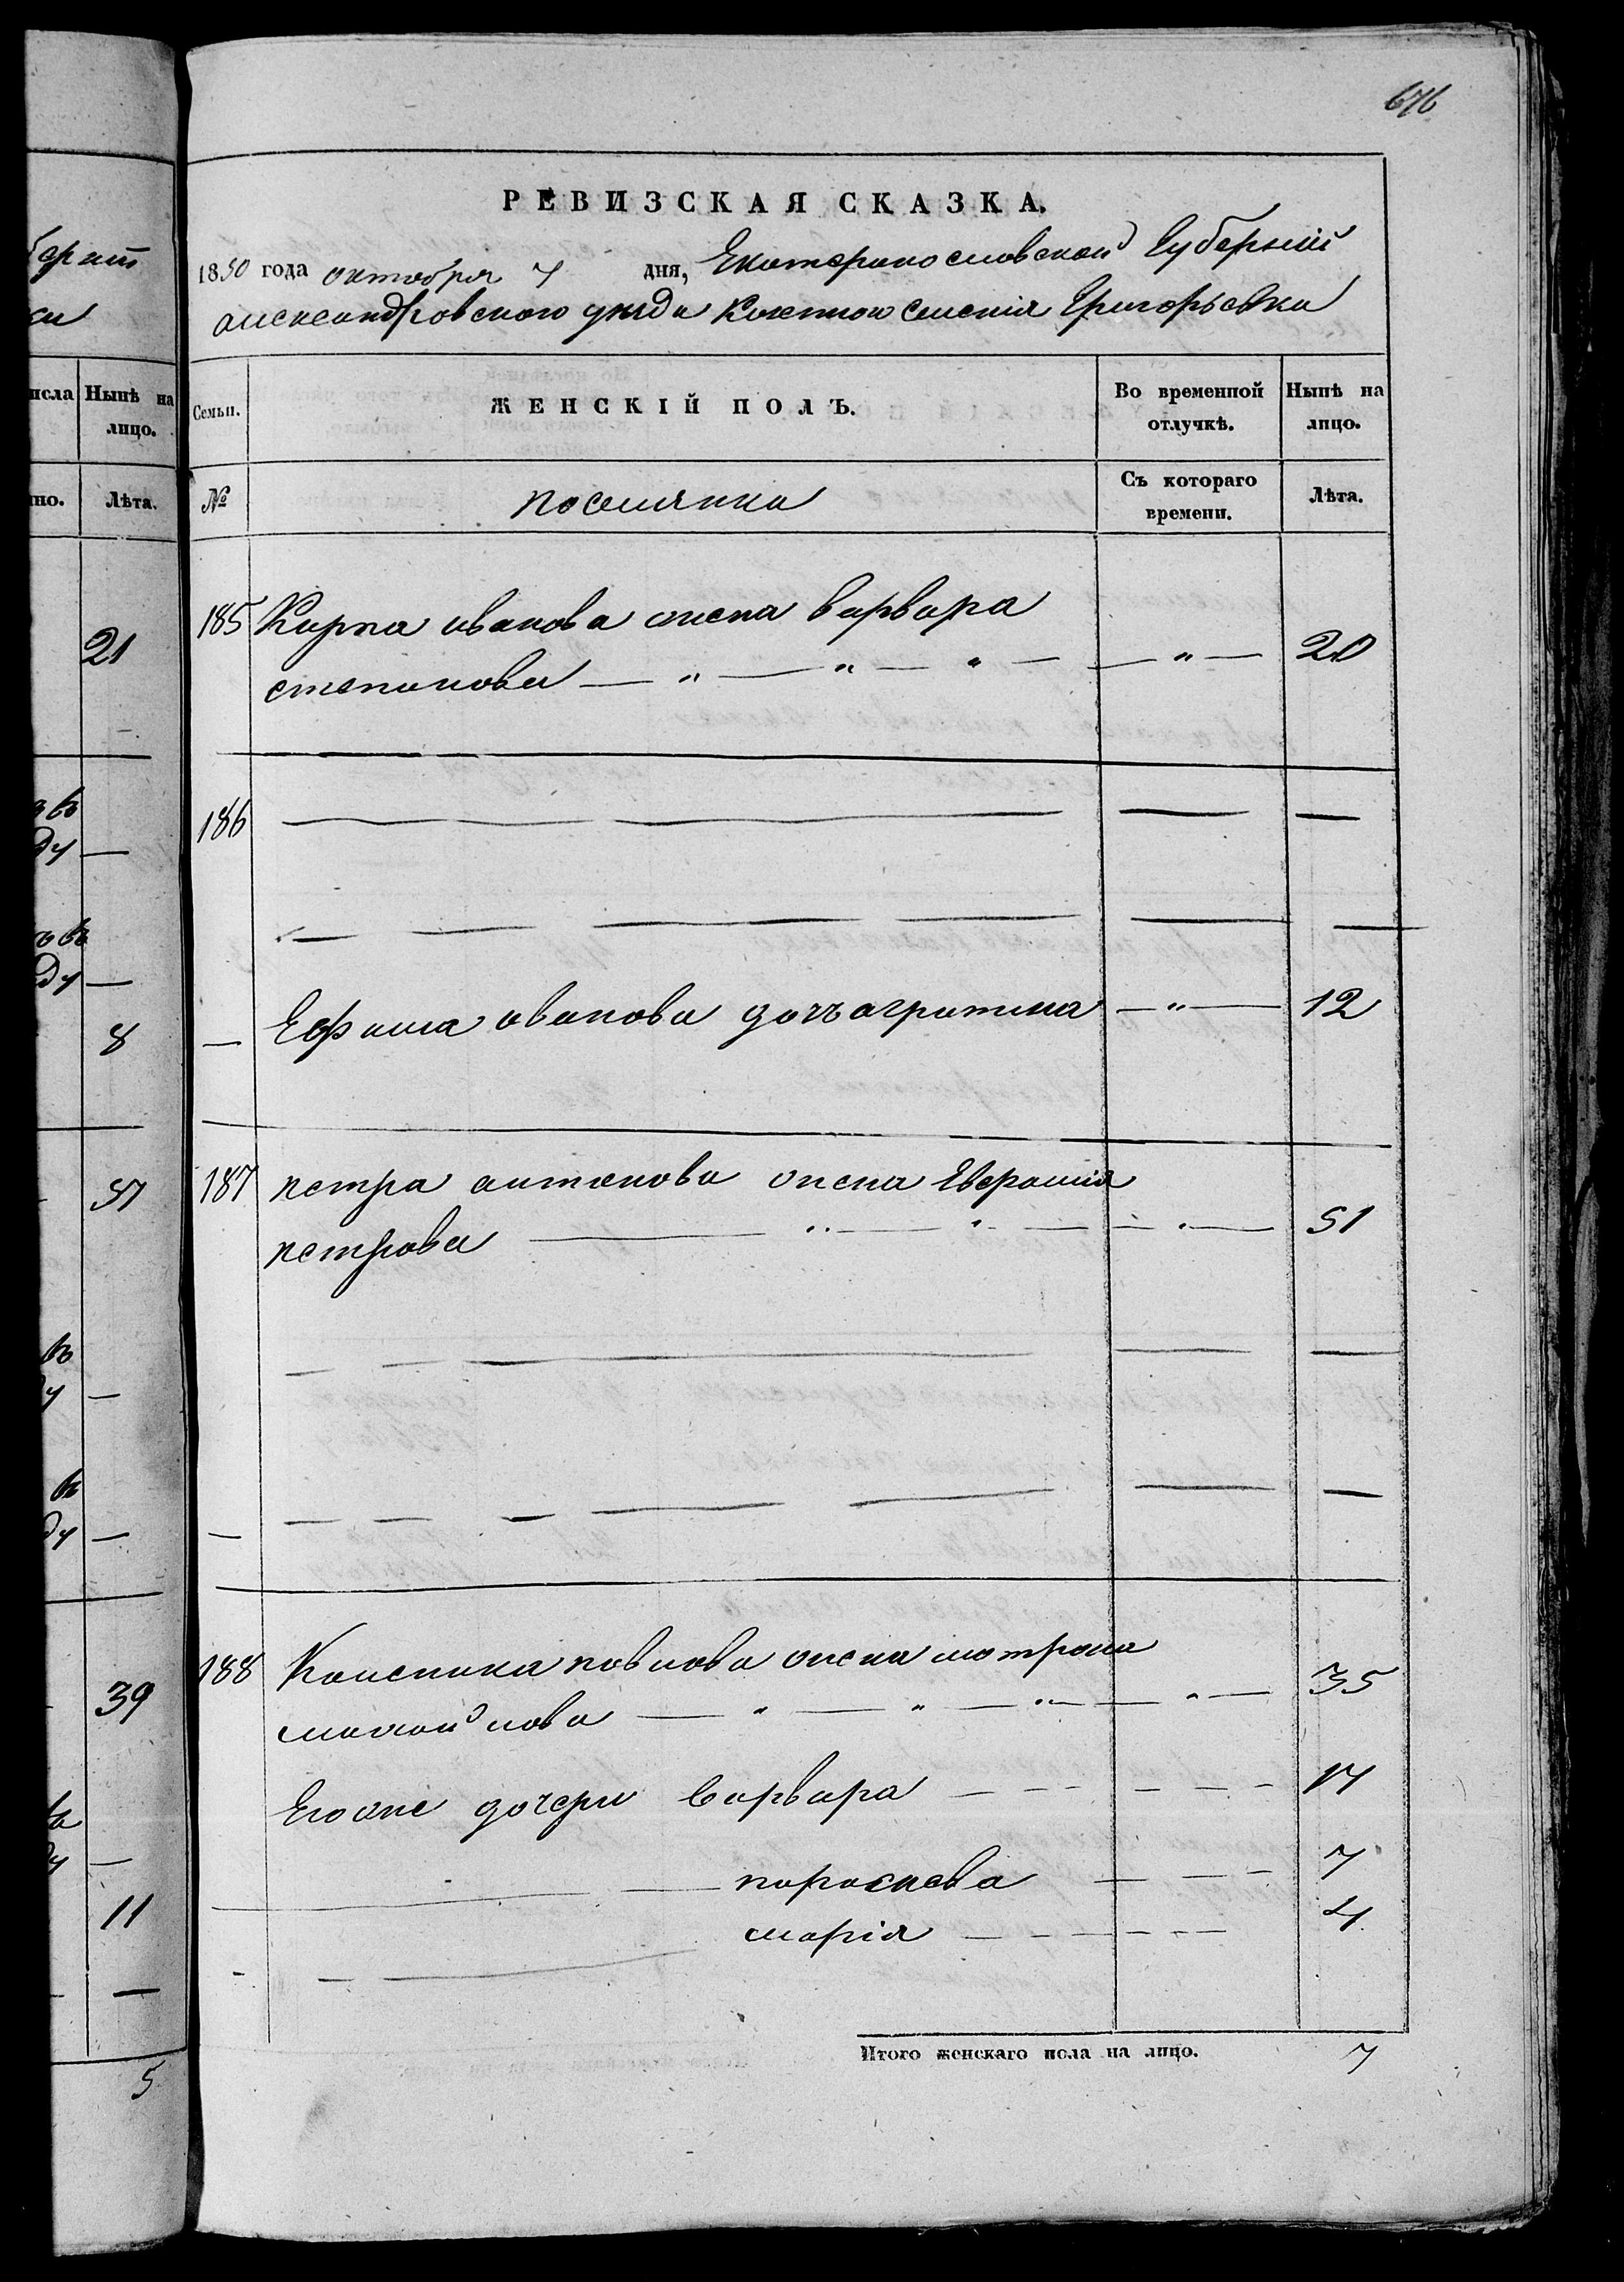 676
РЕВИЗСКАЯ СКАЗКА.
1850 года октября 7 дня, Екатеринославской Губернии
александровского уезда Казенного селения Григорьевки
Семьи.
ЖЕНСКІЙ ПОЛЪ.
Во временной отлучкѣ.
Нынѣ на лицо.
№
поселянки
Съ котораго времени.
Лѣта.
185 Карпа иванова жена варвара
степанова — „ — „ — „ — — „ — 20
186 — — —
— — — — — —
— Ефима иванова дочь агрипина — „ — 12
187 петра антонова жена Евфросинія
петрова — „ — „ — — „ — 51
— — — — —
— — — — — — — —
188 павлова жена матрона
самойлова — „ — „ — „ — — „ — 35
Егоже дочери варвара — — — — — — 17
— — параскева — — — 7
- — — марія — — — — — — 4
Итого женскаго пола на лицо. 7
берніи
ки
исла
Нынѣ на лицо.
но.
Лѣта.
21
въ
ду —
въ
ду —
8
57
въ
ду —
въ
ду —
39
ду —
11
—
5